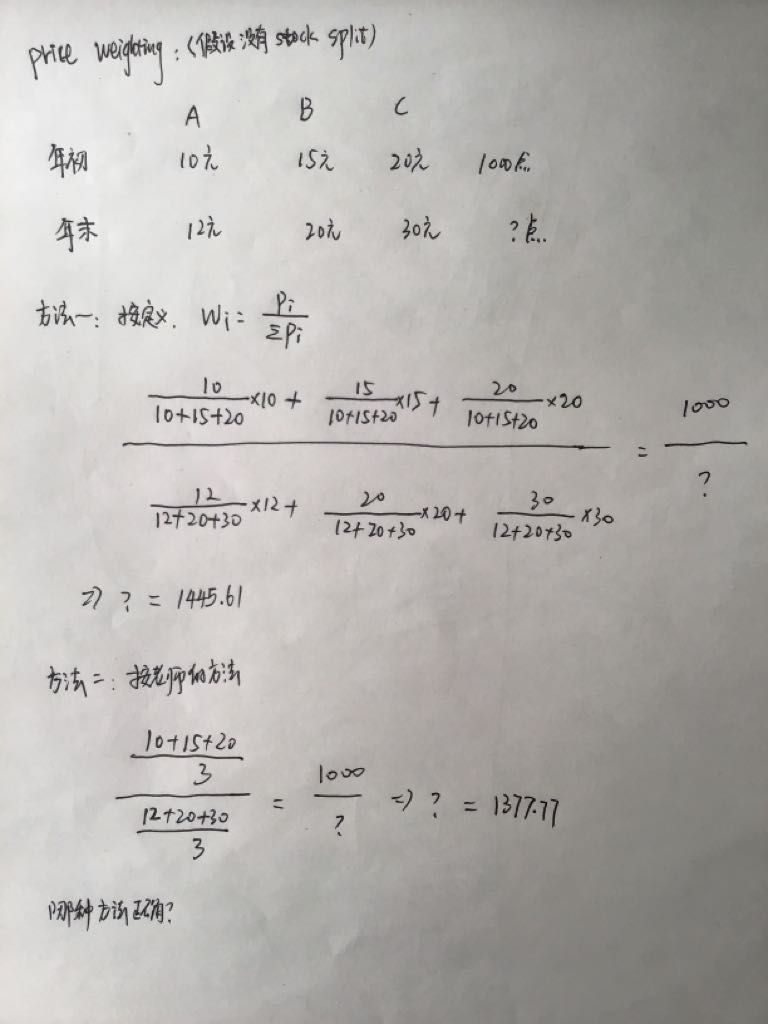 price weighting：(假设没有 stock split)
A B C
年初 10元 15元 20元 1000点
年末 12元 20元 30元 ?点.
方法一：按定义. Wi = Pi / ΣPi
10/(10+15+20) ×10 + 15/(10+15+20) ×15 + 20/(10+15+20) ×20
= 1000 / ?
12/(12+20+30) ×12 + 20/(12+20+30) ×20 + 30/(12+20+30) ×30
=> ? = 1445.61
方法二：按老师的方法
(10+15+20)/3 / (12+20+30)/3 = 1000/? => ? = 1377.77
哪种方法正确?